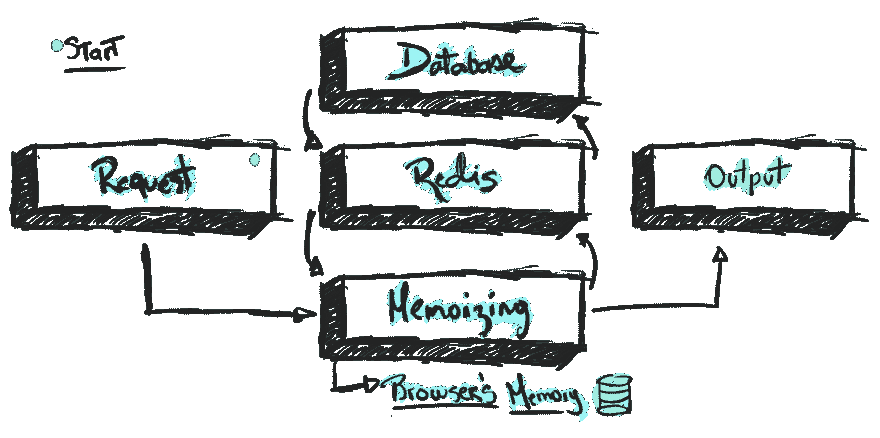 Start
Database
Request
Redis
Output
Memoizing
Browser's Memory